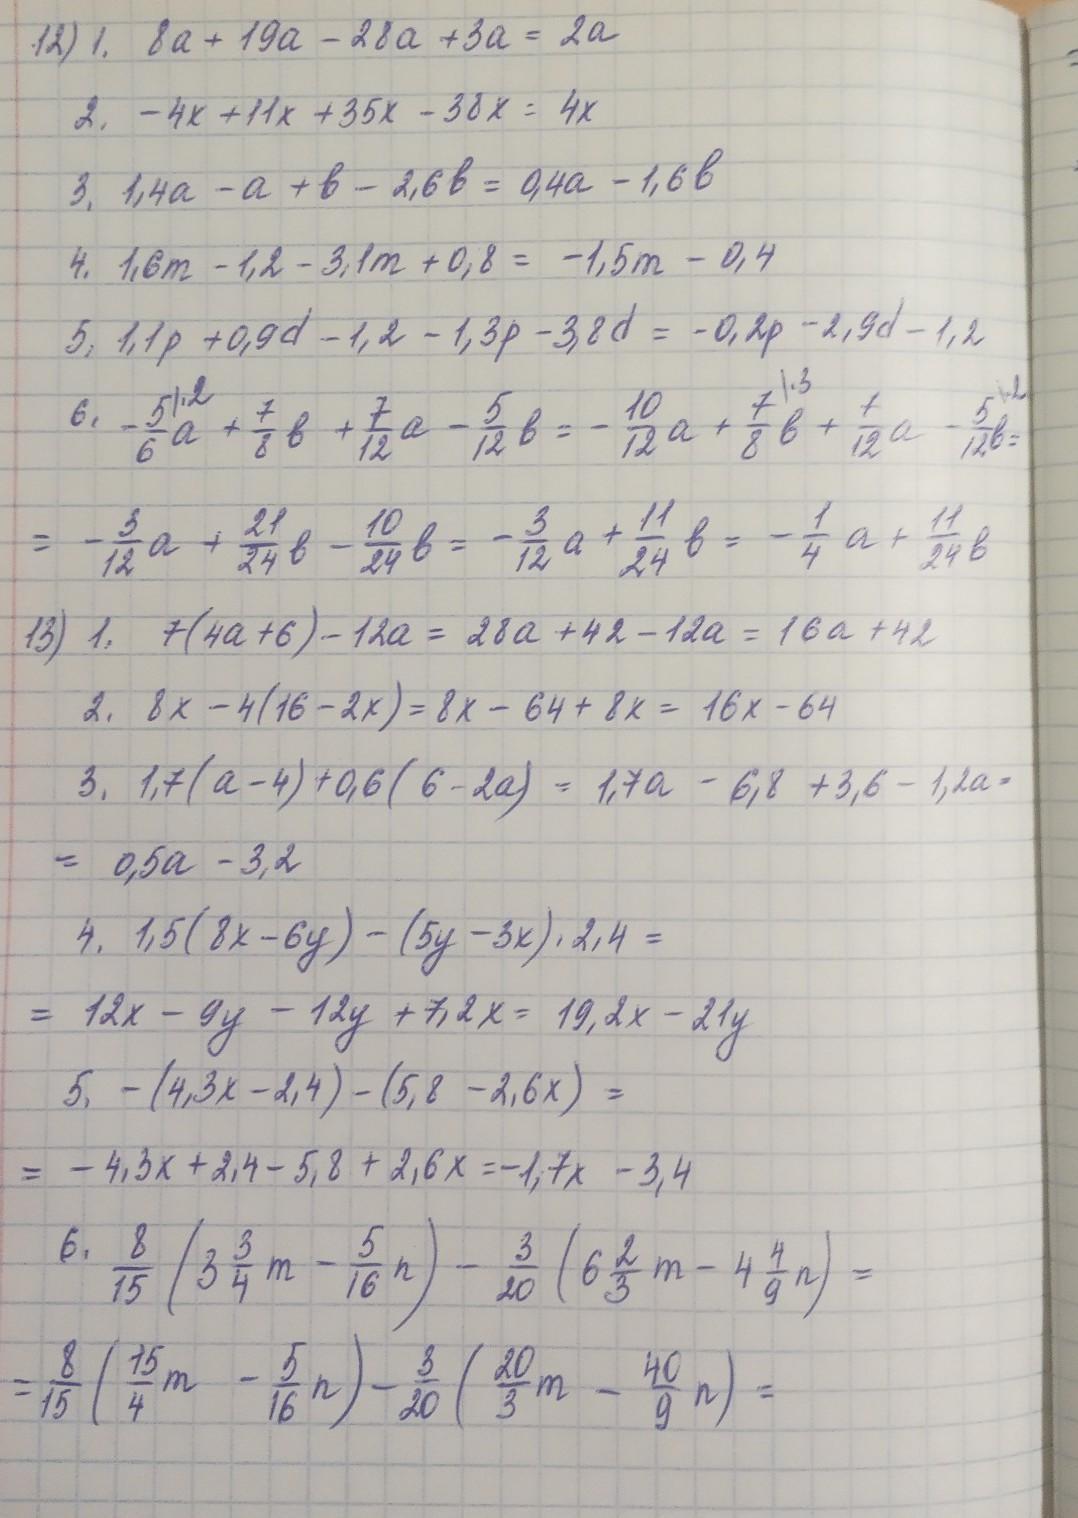 12) 1. 8a + 19a - 28a + 3a = 2a
2. -4x + 11x + 35x - 38x = 4x
3. 1,4a - a + в - 2,6в = 0,4a - 1,6в
4. 1,6m - 1,2 - 3,1m + 0,8 = -1,5m - 0,4
5. 1,1p + 0,9d - 1,2 - 1,3p - 3,8d = -0,2p - 2,9d - 1,2
6. -5/6 \·2 a + 7/8 в + 7/12 a - 5/12 в = -10/12 a + 7/8 \·3 в + 7/12 a - 5/12 \·2 в =
= -3/12 a + 21/24 в - 10/24 в = -3/12 a + 11/24 в = -1/4 a + 11/24 в
13) 1. 7(4a + 6) - 12a = 28a + 42 - 12a = 16a + 42
2. 8x - 4(16 - 2x) = 8x - 64 + 8x = 16x - 64
3. 1,7(a - 4) + 0,6(6 - 2a) = 1,7a - 6,8 + 3,6 - 1,2a =
= 0,5a - 3,2
4. 1,5(8x - 6y) - (5y - 3x) · 2,4 =
= 12x - 9y - 12y + 7,2x = 19,2x - 21y
5. -(4,3x - 2,4) - (5,8 - 2,6x) =
= -4,3x + 2,4 - 5,8 + 2,6x = -1,7x - 3,4
6. 8/15 (3 3/4 m - 5/16 n) - 3/20 (6 2/3 m - 4 4/9 n) =
= 8/15 (15/4 m - 5/16 n) - 3/20 (20/3 m - 40/9 n) =